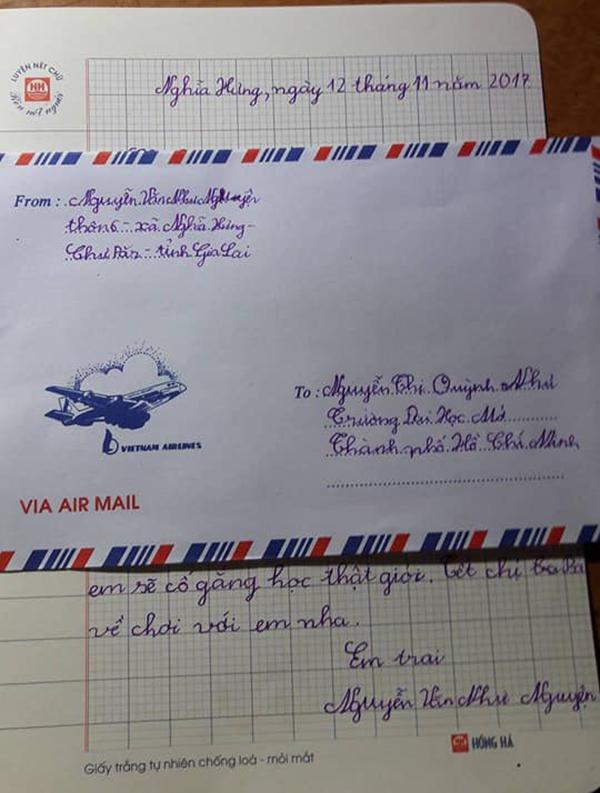 LUYỆN NÉT CHỮ
HH
Rèn nết người
Nghĩa Hưng, ngày 12 tháng 11 năm 2017
From : Nguyễn Văn Như Nguyện
thôn 6 - xã Nghĩa Hưng -
Chư Păh - tỉnh Gia Lai
To : Nguyễn Thị Quỳnh Như
Trường Đại Học Mở
Thành phố Hồ Chí Minh
VIETNAM AIRLINES
VIA AIR MAIL
em sẽ cố gắng học thật giỏi. Tết chị
về chơi với em nha.
Em trai
Nguyễn Văn Như Nguyện
HH HỒNG HÀ
Giấy trắng tự nhiên chống loá - mỏi mắt